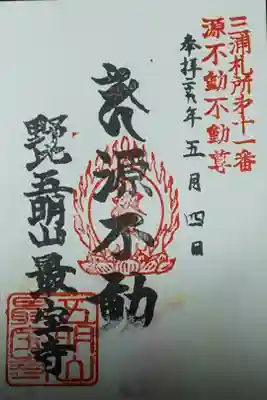 三浦札所第十一番
源不動不動尊
奉拝 二九年五月四日
源不動
野比五明山最宝寺